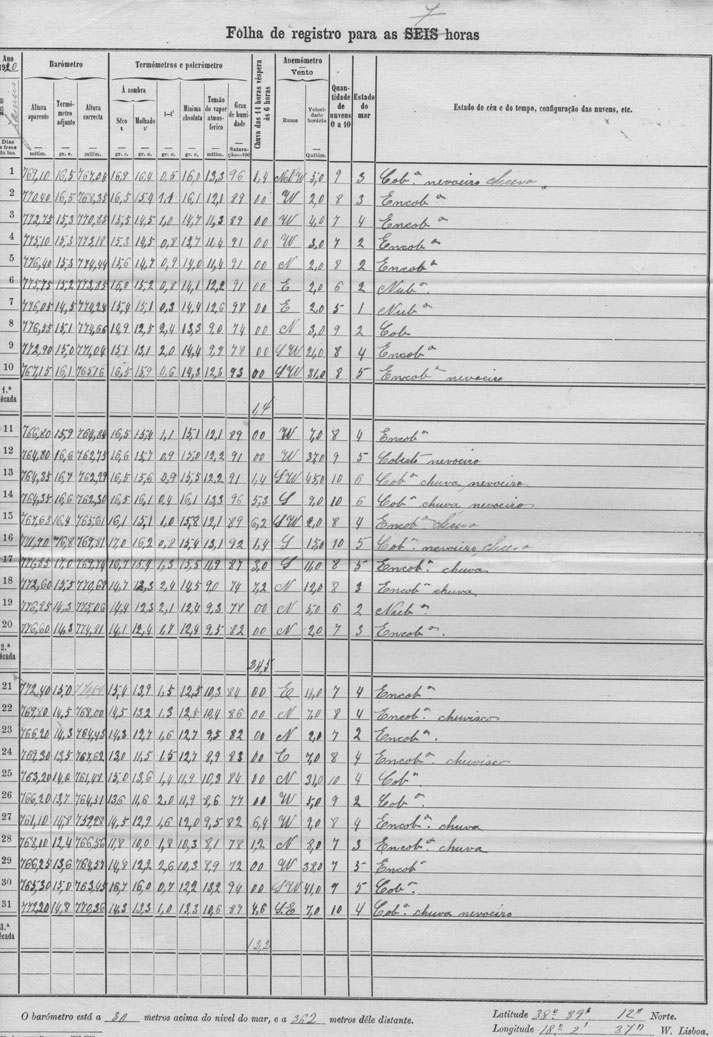 7
Fôlha de registro para as SEIS horas
Ano 1920
Janeiro
Dias e fases da lua
Barómetro
Termómetros e psicrómetro
Chuva das 11 horas véspera às 6 horas
Anemómetro Vento
Quantidade de nuvens 0 a 10
Estado do mar
Estado do céu e do tempo, configuração das nuvens, etc.
Altura aparente
Termómetro adjunto
Altura correcta
Á sombra
Sêco t
Molhado t'
t—t'
Mínima absoluta
Tensão do vapor atmosférico
Grau de humidade
Rumo
Velocidade horária
milím. gr. c. milím. gr. c. gr. c. gr. c. gr. c. milím. Saturação=100 Quilóm.
1 769,10 16,5 767,04 16,8 16,4 0,5 16,0 13,3 96 1,4 NNW 5,0 9 3 Cobº nevoeiro chuva
2 770,40 16,5 768,35 16,5 15,4 1,1 16,1 12,1 89 00 W 2,0 8 3 Encobº
3 772,75 15,3 770,85 15,5 14,5 1,0 14,7 11,3 89 00 W 4,0 7 4 Encobº
4 775,10 15,3 773,18 15,3 14,5 0,8 12,7 11,4 91 00 W 3,0 7 2 Encobº
5 776,40 15,3 774,44 15,6 14,7 0,9 14,0 11,4 91 00 N 2,0 8 2 Encobº
6 775,75 15,2 773,85 16,0 15,2 0,8 14,1 12,2 91 00 E 2,0 6 2 Nubº
7 776,05 14,5 774,24 15,4 15,1 0,3 14,4 12,6 98 00 E 2,0 5 1 Nubº
8 776,55 15,1 774,66 14,9 12,5 2,4 13,3 9,0 74 00 N 3,0 9 2 Cob
9 772,90 15,0 771,04 15,1 13,1 2,0 14,4 9,9 78 00 SW 21,0 8 4 Encobº
10 767,15 16,1 765,16 16,5 15,9 0,6 14,3 12,3 93 00 SW 31,0 8 5 Encobº nevoeiro
1.ª década 1,4
11 766,80 15,9 764,84 16,5 15,4 1,1 15,1 12,1 89 00 W 7,0 8 4 Encobº
12 764,80 16,6 762,75 16,6 15,7 0,9 15,0 12,2 91 00 W 37,0 9 5 Coberto nevoeiro
13 764,35 16,7 762,29 16,5 15,6 0,9 15,5 12,2 91 1,4 SW 45,0 10 6 Cobº chuva nevoeiro
14 764,35 16,6 762,30 16,5 16,1 2,4 16,1 13,3 96 5,3 S 9,0 10 6 Cobº chuva nevoeiro
15 767,65 16,4 765,61 16,1 15,1 1,0 15,8 12,1 89 6,2 SW 2,0 8 4 Encobº chuva
16 771,90 16,8 769,81 17,0 16,2 0,8 15,4 13,1 92 1,4 S 15,0 10 5 Cobº nevoeiro chuva
17 771,85 17,0 769,74 16,7 15,4 1,3 15,5 11,9 87 3,0 S 11,0 8 5 Encobº chuva
18 772,60 15,5 770,68 14,7 12,3 2,4 14,5 9,0 74 7,2 N 12,0 8 3 Encobº chuva
19 776,85 14,3 775,06 14,4 12,3 2,1 12,4 9,3 77 00 N 5,0 6 2 Nubº
20 776,60 14,3 774,81 14,1 12,4 1,7 12,4 9,5 82 00 N 2,0 7 3 Encobº.
2.ª década 24,5
21 772,40 15,0 15,4 13,9 1,5 12,5 10,3 84 00 E 11,0 7 4 Encobº
22 769,80 14,5 768,00 14,5 13,2 1,3 12,4 10,4 86 00 N 7,0 8 4 Encobº chuvisco
23 766,20 14,3 764,45 14,3 12,7 1,6 12,7 9,5 82 00 N 2,0 7 2 Encobº.
24 769,30 13,5 767,62 13,0 11,5 1,5 12,7 8,9 83 00 E 7,0 8 4 Encobº chuvisco
25 763,20 14,6 761,48 15,0 13,6 1,4 11,9 10,3 84 00 N 31,0 10 4 Cobº
26 766,20 13,7 764,51 13,6 11,6 2,0 11,9 8,6 77 00 W 5,0 9 2 Cobº.
27 761,10 14,8 759,28 14,5 12,9 1,6 12,0 9,5 82 6,4 W 2,0 8 4 Encobº. chuva
28 768,10 12,4 766,56 11,8 10,0 1,8 10,3 8,1 78 1,2 N 3,0 7 3 Encobº chuva
29 766,25 13,6 764,57 14,8 12,2 2,6 10,3 8,9 72 00 W 38,0 7 5 Encobº
30 765,30 15,0 763,45 16,7 16,0 0,7 12,2 13,2 94 00 SW 41,0 9 5 Cobº.
31 772,20 14,8 770,36 14,3 13,3 1,0 13,3 10,6 87 4,6 SE 7,0 10 4 Cobº chuva nevoeiro
3.ª década 12,2
O barómetro está a 30 metros acima do nivel do mar, e a 352 metros dêle distante.
Latitude 38º 39' 12" Norte.
Longitude 18º 2' 37" W. Lisboa.